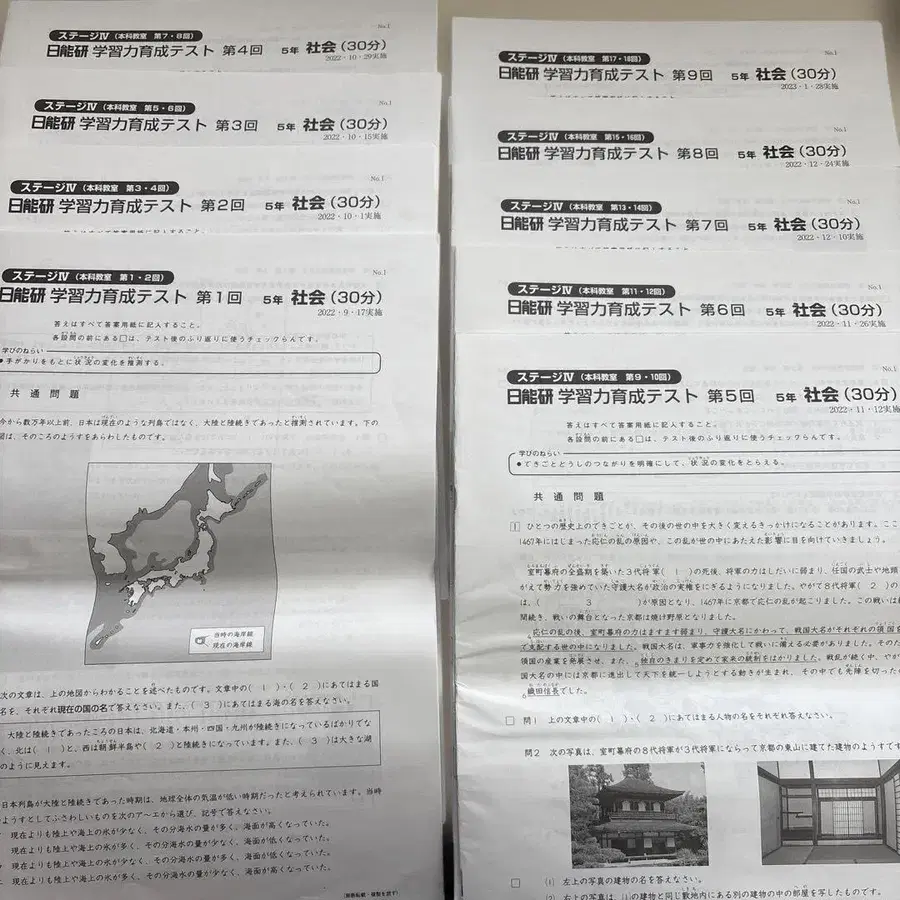 ステージⅣ（本科教室　第7・8回）
No.1
日能研 学習力育成テスト 第4回　5年 社会（30分）
2022・10・29実施
ステージⅣ（本科教室　第5・6回）
No.1
日能研 学習力育成テスト 第3回　5年 社会（30分）
2022・10・15実施
ステージⅣ（本科教室　第3・4回）
No.1
日能研 学習力育成テスト 第2回　5年 社会（30分）
2022・10・1実施
ステージⅣ（本科教室　第1・2回）
No.1
日能研 学習力育成テスト 第1回　5年 社会（30分）
2022・9・17実施
答えはすべて答案用紙に記入すること。
各設問の前にある□は、テスト後のふり返りに使うチェックらんです。
学びのねらい
●手がかりをもとに状況の変化を推測する。
共通問題
今から数万年以上前、日本は現在のような列島ではなく、大陸と陸続きであったと推測されています。下の
図は、そのころのようすをあらわしたものです。
当時の海岸線
現在の海岸線
次の文章は、上の地図からわかることを述べたものです。文中の（ 1 ）・（ 2 ）にあてはまる国
名を、それぞれ現在の国の名で答えなさい。また、（ 3 ）にあてはまる海の名を答えなさい。
大陸と陸続きであったころの日本は、北海道・本州・四国・九州が陸続きになっているばかりでな
く、北は（ 1 ）と、西は朝鮮半島や（ 2 ）と陸続きになっています。また、（ 3 ）は大きな湖
のように見えます。
日本列島が大陸と陸続きであった時期は、地球全体の気温が低い時期だったと考えられています。当時
ようすとしてふさわしいものを次のア〜エから選び、記号で答えなさい。
現在よりも陸上や海上の氷が少なく、その分海水の量が多く、海面が高くなっていた。
現在よりも陸上や海上の氷が多く、その分海水の量が少なく、海面が低くなっていた。
現在よりも陸上や海上の氷が少なく、その分海水の量が多く、海面が低くなっていた。
現在よりも陸上や海上の氷が多く、その分海水の量が少なく、海面が高くなっていた。
（無断転載・複製を禁ず）
ステージⅣ（本科教室　第17・18回）
No.1
日能研 学習力育成テスト 第9回　5年 社会（30分）
2023・1・28実施
ステージⅣ（本科教室　第15・16回）
No.1
日能研 学習力育成テスト 第8回　5年 社会（30分）
2022・12・24実施
ステージⅣ（本科教室　第13・14回）
No.1
日能研 学習力育成テスト 第7回　5年 社会（30分）
2022・12・10実施
ステージⅣ（本科教室　第11・12回）
No.1
日能研 学習力育成テスト 第6回　5年 社会（30分）
2022・11・26実施
ステージⅣ（本科教室　第9・10回）
No.1
日能研 学習力育成テスト 第5回　5年 社会（30分）
2022・11・12実施
答えはすべて答案用紙に記入すること。
各設問の前にある□は、テスト後のふり返りに使うチェックらんです。
学びのねらい
●できごとどうしのつながりを明確にして、状況の変化をとらえる。
共通問題
1 ひとつの歴史上のできごとが、その後の世の中を大きく変えるきっかけになることがあります。ここ
1467年にはじまった応仁の乱の原因や、この乱が世の中にあたえた影響に目を向けていきましょう。
室町幕府の全盛期を築いた3代将軍（ 1 ）の死後、将軍の力はしだいに弱まり、任国の武士や地頭
がえて勢力を強めていた守護大名が政治の実権をにぎるようになりました。やがて8代将軍（ 2 ）の
は、（ 3 ）が原因となり、1467年に京都で応仁の乱が起こりました。この戦いは
間続き、戦いの舞台となった京都は焼け野原となりました。
応仁の乱の後、室町幕府の力はますます弱まり、守護大名にかわって、戦国大名がそれぞれの領国
4 て支配する世の中になりました。戦国大名は、軍事力を強化して戦いに備える必要がありました。そのた
領国の産業を発展させ、また、5 独自のきまりを定めて家来の統制をはかりました。戦乱が続く中、やが
国大名の中には京都に進出して天下を統一しようとする動きが生まれ、その中でも先陣を切った
6 織田信長でした。
□ 問1 上の文章中の（ 1 ）・（ 2 ）にあてはまる人物の名をそれぞれ答えなさい。
問2 次の写真は、室町幕府の8代将軍が3代将軍にならって京都の東山に建てた建物のようすです
□ (1) 左上の写真の建物の名を答えなさい。
(2) 右上の写真は、(1)の建物と同じ敷地内にある別の建物の中の部屋を写したものです。